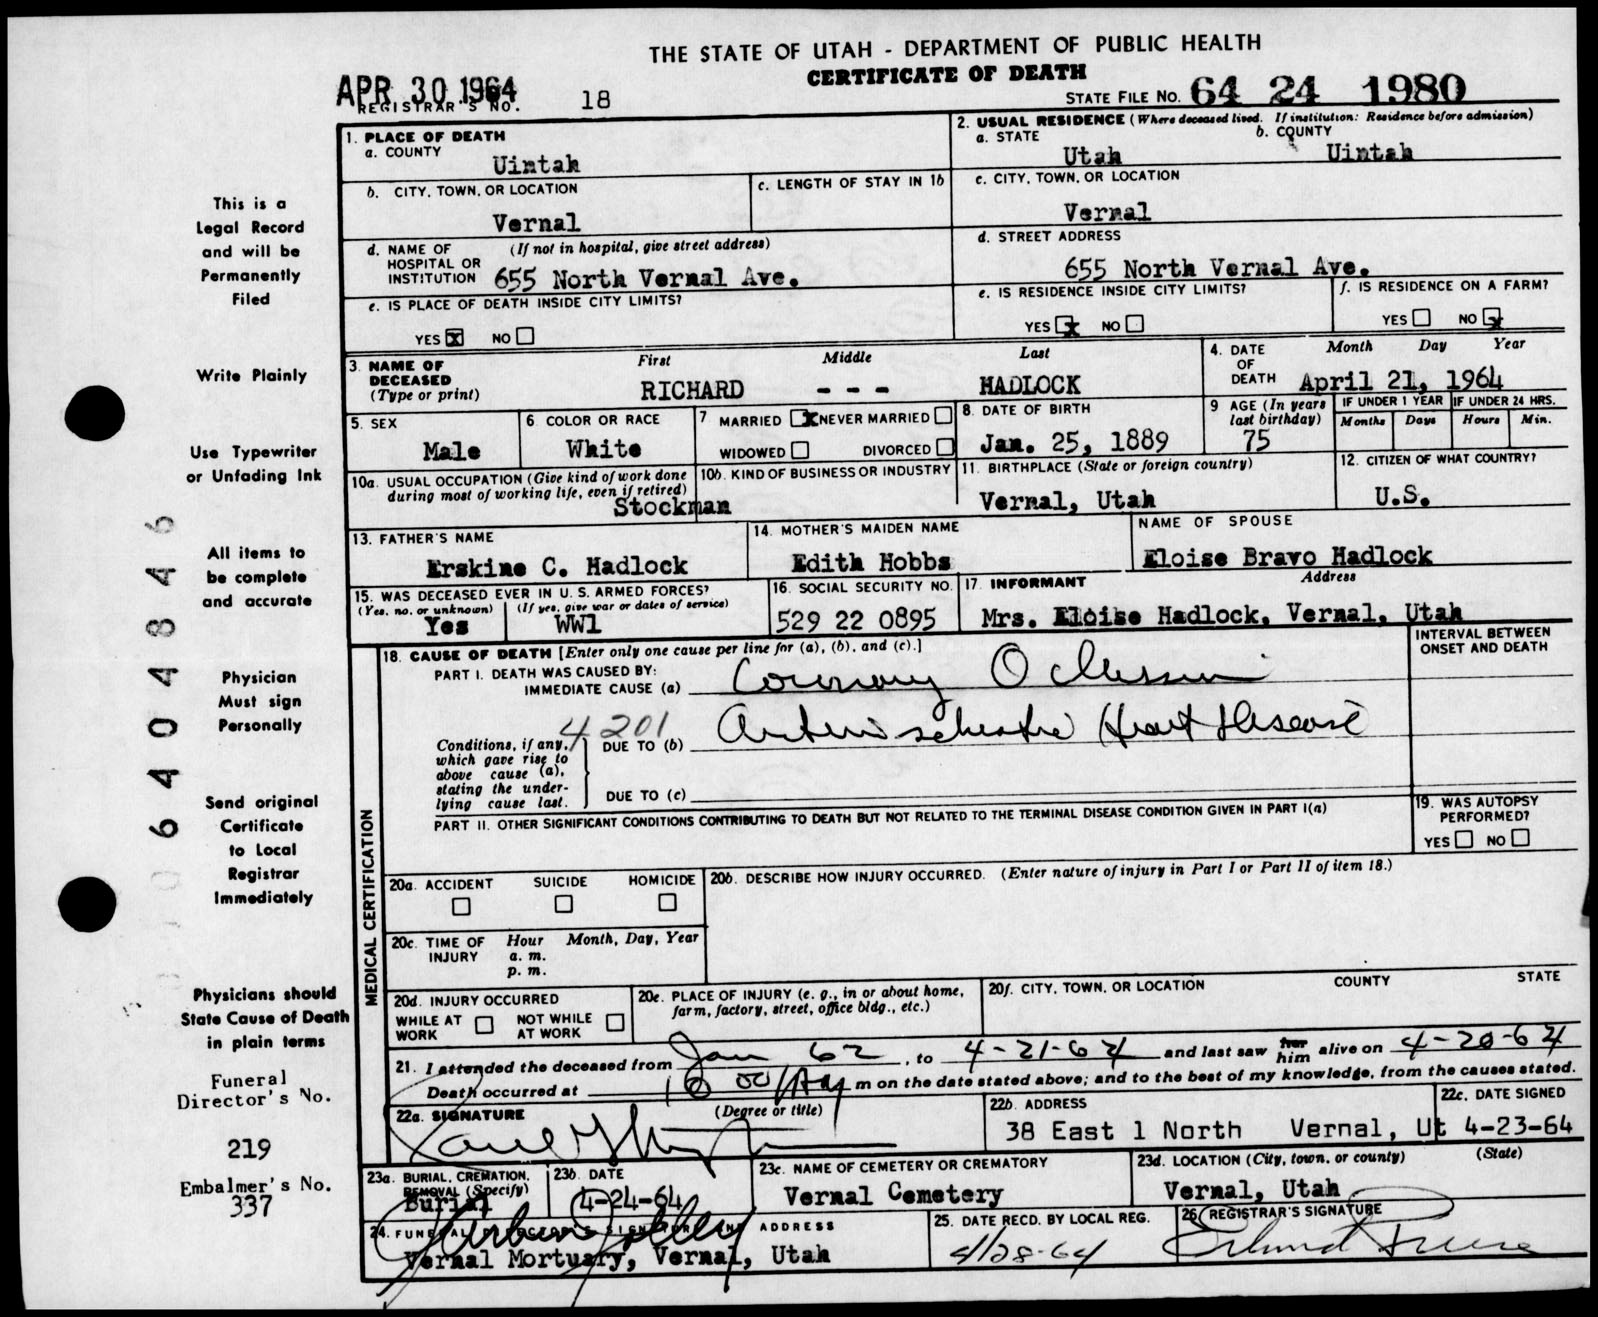 THE STATE OF UTAH - DEPARTMENT OF PUBLIC HEALTH
CERTIFICATE OF DEATH
APR 30 1964
REGISTRAR'S NO. 18
STATE FILE NO. 64 24 1980
1. PLACE OF DEATH
a. COUNTY
Uintah
2. USUAL RESIDENCE (Where deceased lived. If institution: Residence before admission)
a. STATE b. COUNTY
Utah Uintah
b. CITY, TOWN, OR LOCATION
Vernal
c. LENGTH OF STAY IN 1b
c. CITY, TOWN, OR LOCATION
Vernal
d. NAME OF HOSPITAL OR INSTITUTION
(If not in hospital, give street address)
655 North Vernal Ave.
d. STREET ADDRESS
655 North Vernal Ave.
e. IS PLACE OF DEATH INSIDE CITY LIMITS?
YES x NO
e. IS RESIDENCE INSIDE CITY LIMITS?
YES x NO
f. IS RESIDENCE ON A FARM?
YES NO x
3. NAME OF DECEASED (Type or print)
First Middle Last
RICHARD - - - HADLOCK
4. DATE OF DEATH
Month Day Year
April 21, 1964
5. SEX
Male
6. COLOR OR RACE
White
7 MARRIED x NEVER MARRIED
WIDOWED DIVORCED
8. DATE OF BIRTH
Jan. 25, 1889
9 AGE (In years last birthday)
75
IF UNDER 1 YEAR
Months Days
IF UNDER 24 HRS.
Hours Min.
10a. USUAL OCCUPATION (Give kind of work done during most of working life, even if retired)
Stockman
10b. KIND OF BUSINESS OR INDUSTRY
11. BIRTHPLACE (State or foreign country)
Vernal, Utah
12. CITIZEN OF WHAT COUNTRY?
U.S.
13. FATHER'S NAME
Erskine C. Hadlock
14. MOTHER'S MAIDEN NAME
Edith Hobbs
NAME OF SPOUSE
Eloise Bravo Hadlock
15. WAS DECEASED EVER IN U. S. ARMED FORCES?
(Yes, no, or unknown) (If yes, give war or dates of service)
Yes WW1
16. SOCIAL SECURITY NO.
529 22 0895
17. INFORMANT Address
Mrs. Eloise Hadlock, Vernal, Utah
MEDICAL CERTIFICATION
18. CAUSE OF DEATH [Enter only one cause per line for (a), (b), and (c).]
INTERVAL BETWEEN ONSET AND DEATH
PART I. DEATH WAS CAUSED BY:
IMMEDIATE CAUSE (a) Coronary Occlusion
4201
Conditions, if any, which gave rise to above cause (a), stating the underlying cause last.
DUE TO (b) Arteriosclerotic Heart Disease
DUE TO (c)
PART II. OTHER SIGNIFICANT CONDITIONS CONTRIBUTING TO DEATH BUT NOT RELATED TO THE TERMINAL DISEASE CONDITION GIVEN IN PART I(a)
19. WAS AUTOPSY PERFORMED?
YES NO
20a. ACCIDENT SUICIDE HOMICIDE
20b. DESCRIBE HOW INJURY OCCURRED. (Enter nature of injury in Part I or Part II of item 18.)
20c. TIME OF INJURY
Hour Month, Day, Year
a. m.
p. m.
20d. INJURY OCCURRED
WHILE AT WORK NOT WHILE AT WORK
20e. PLACE OF INJURY (e. g., in or about home, farm, factory, street, office bldg., etc.)
20f. CITY, TOWN, OR LOCATION COUNTY STATE
21. I attended the deceased from Jan 62, to 4-21-64 and last saw him alive on 4-20-64
Death occurred at m on the date stated above; and to the best of my knowledge, from the causes stated.
22a. SIGNATURE (Degree or title)
22b. ADDRESS
38 East 1 North Vernal, Ut
22c. DATE SIGNED
4-23-64
23a. BURIAL, CREMATION, REMOVAL (Specify)
Burial
23b. DATE
4-24-64
23c. NAME OF CEMETERY OR CREMATORY
Vernal Cemetery
23d. LOCATION (City, town, or county) (State)
Vernal, Utah
24. FUNERAL DIRECTOR'S SIGNATURE AND ADDRESS
Vernal Mortuary, Vernal, Utah
25. DATE RECD. BY LOCAL REG.
4/28-64
26 REGISTRAR'S SIGNATURE
This is a
Legal Record
and will be
Permanently
Filed
Write Plainly
Use Typewriter
or Unfading Ink
All items to
be complete
and accurate
Physician
Must sign
Personally
Send original
Certificate
to Local
Registrar
Immediately
Physicians should
State Cause of Death
in plain terms
Funeral
Director's No.
219
Embalmer's No.
337
0640484846